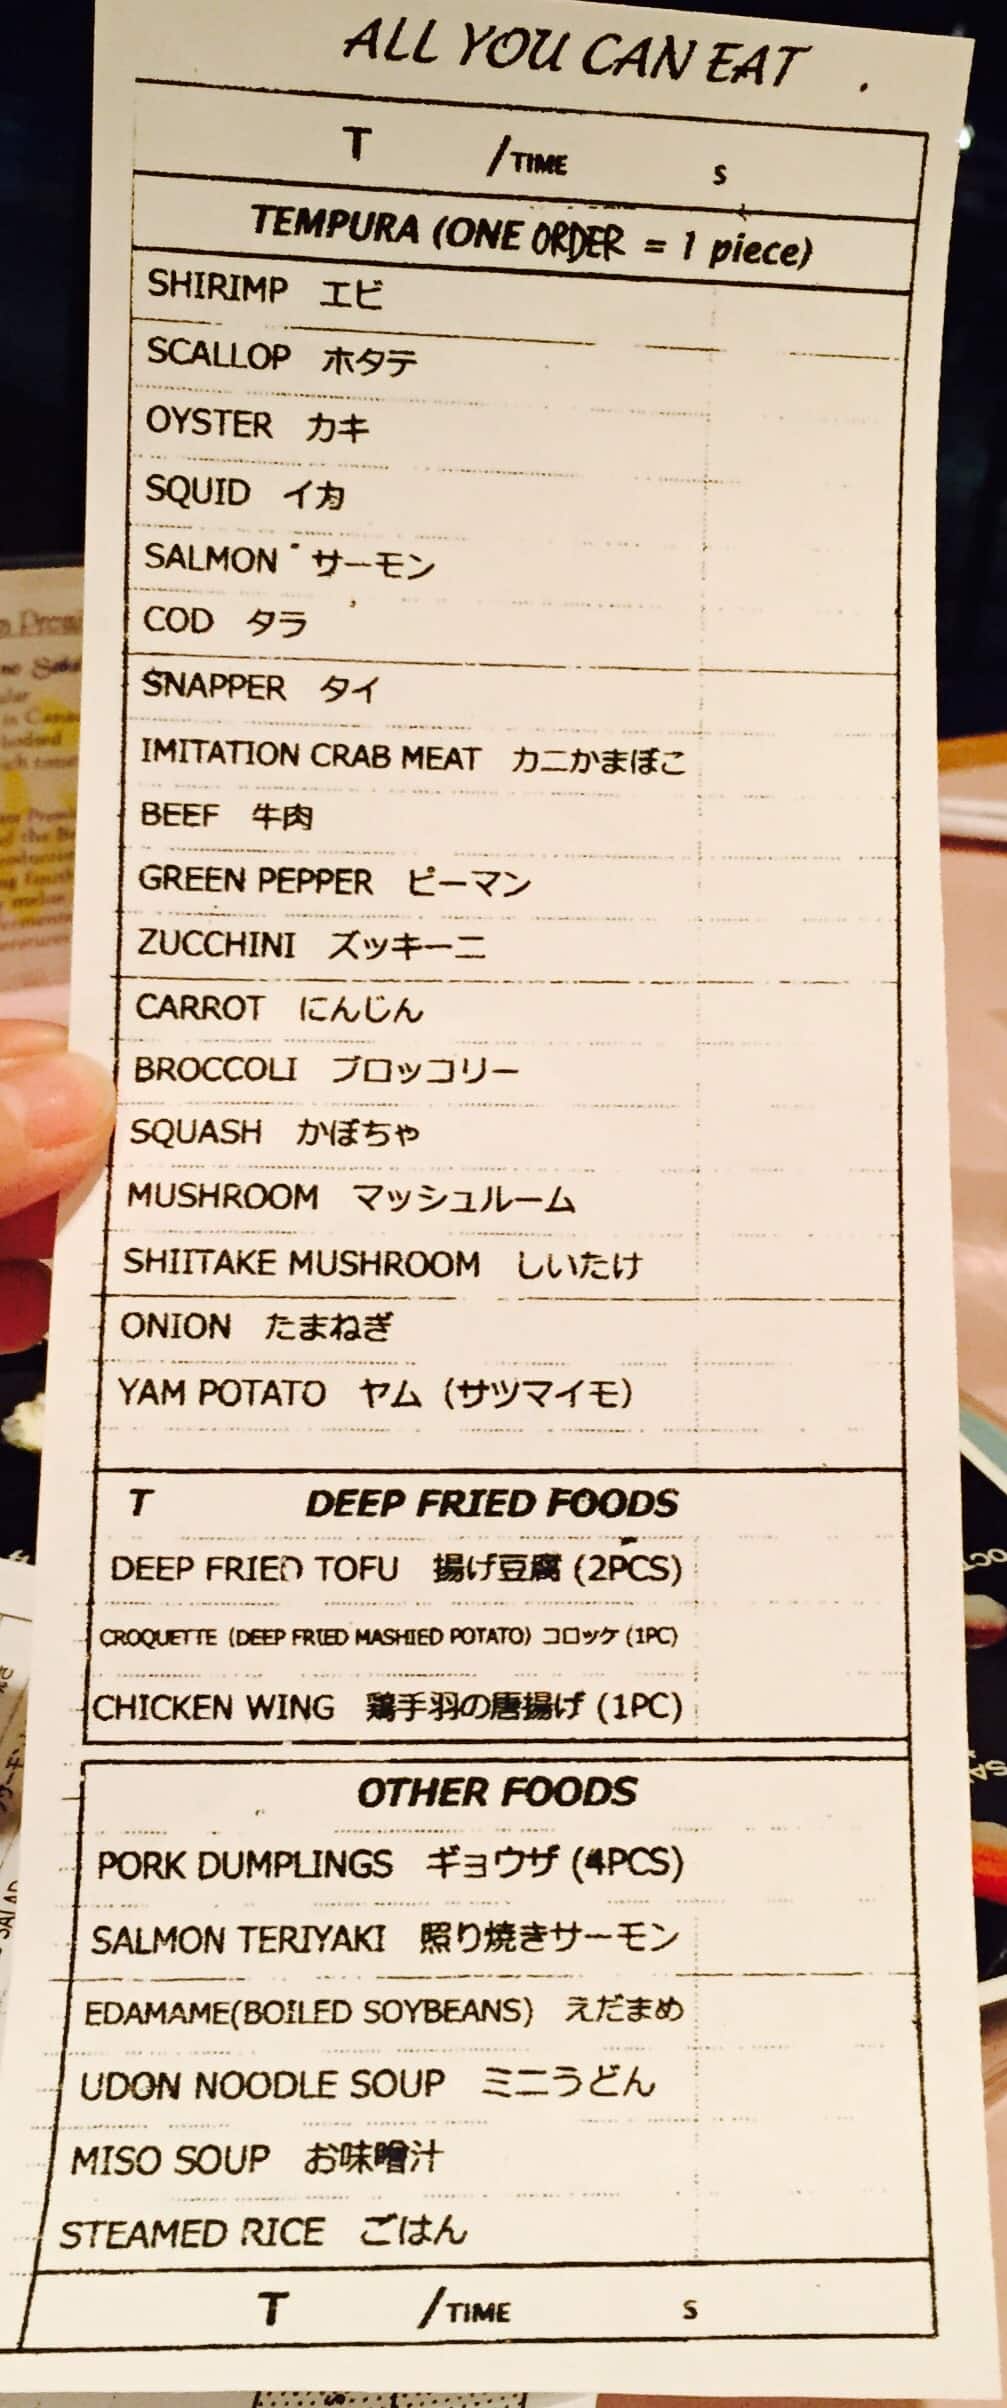 ALL YOU CAN EAT
T /TIME S
TEMPURA (ONE ORDER = 1 piece)
SHIRIMP エビ
SCALLOP ホタテ
OYSTER カキ
SQUID イカ
SALMON サーモン
COD タラ
SNAPPER タイ
IMITATION CRAB MEAT カニかまぼこ
BEEF 牛肉
GREEN PEPPER ピーマン
ZUCCHINI ズッキーニ
CARROT にんじん
BROCCOLI ブロッコリー
SQUASH かぼちゃ
MUSHROOM マッシュルーム
SHIITAKE MUSHROOM しいたけ
ONION たまねぎ
YAM POTATO ヤム（サツマイモ）
T DEEP FRIED FOODS
DEEP FRIED TOFU 揚げ豆腐 (2PCS)
CROQUETTE (DEEP FRIED MASHIED POTATO) コロッケ (1PC)
CHICKEN WING 鶏手羽の唐揚げ (1PC)
OTHER FOODS
PORK DUMPLINGS ギョウザ (4PCS)
SALMON TERIYAKI 照り焼きサーモン
EDAMAME(BOILED SOYBEANS) えだまめ
UDON NOODLE SOUP ミニうどん
MISO SOUP お味噌汁
STEAMED RICE ごはん
T /TIME S